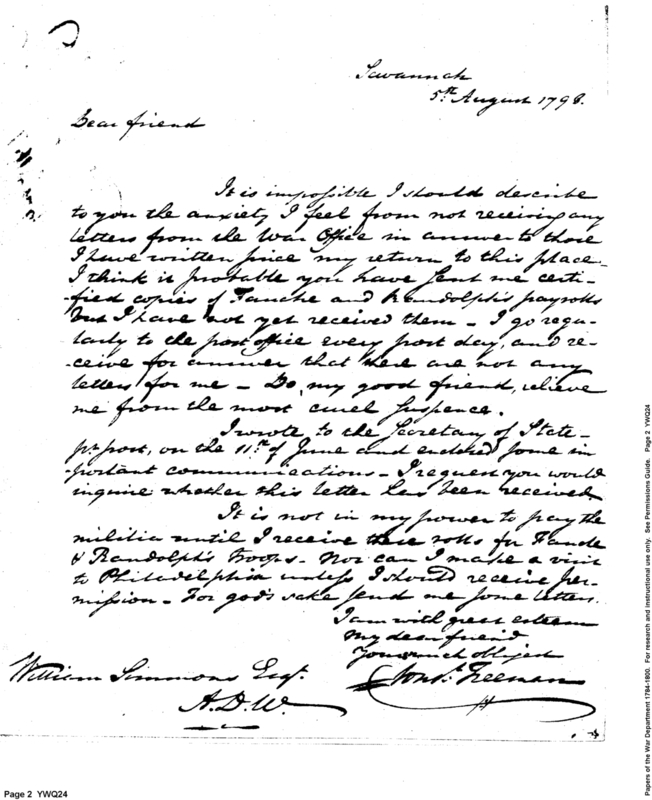 Savannah
5th August 1798.
Dear friend
It is impossible I should describe
to you the anxiety I feel from not receiving any
letters from the War Office in answer to those
I have written since my return to this place.
I think it probable you have sent me certi-
-fied copies of Fauche and Randolph's payrolls
but I have not yet received them - I go regu-
larly to the post office every post day, and re-
-ceive for answer that there are not any
letters for me - Do, my good friend, relieve
me from the most cruel suspence.
I wrote to the Secretary of State
pr. post, on the 11th of June and enclosed some im
-portant communications - I request you would
inquire whether this letter has been received.
It is not in my power to pay the
militia until I receive these rolls for Fauche
& Randolph's troops - Nor can I make a visit
to Philadelphia unless I should receive per-
mission - For god's sake send me some letters.
I am with great esteem
My dear friend
Your much obliged
Const. Freeman
William Simmons Esqr.
A.D.W.
Page 2 YWQ24
Papers of the War Department 1784-1800. For research and instructional use only. See Permissions Guide. Page 2 YWQ24